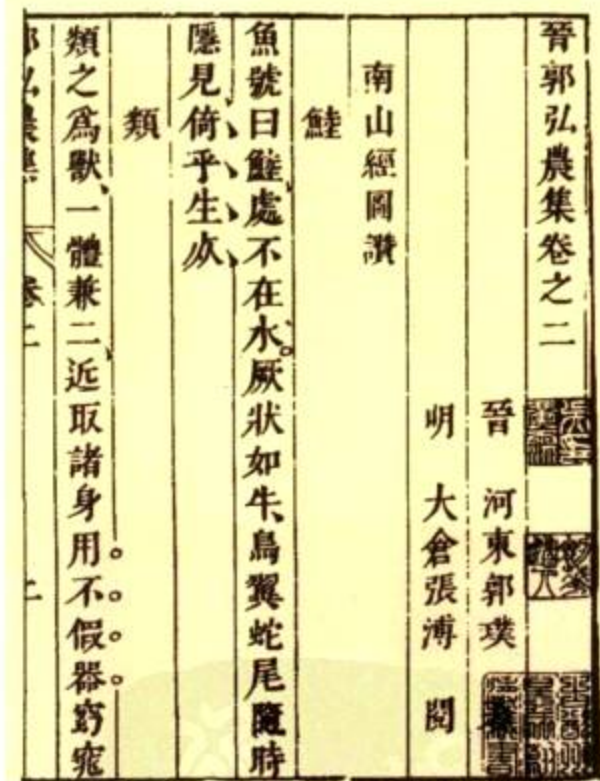 晉郭弘農集卷之二
晉 河東郭璞
明 大倉張溥 閱
南山經圖讚
鯥
魚號曰鯥、處不在水。厥狀如牛、鳥翼蛇尾隨時
隱見倚乎生死
類
類之爲獸、一體兼二、近取諸身用不假器窈窕
郭弘農集 卷二